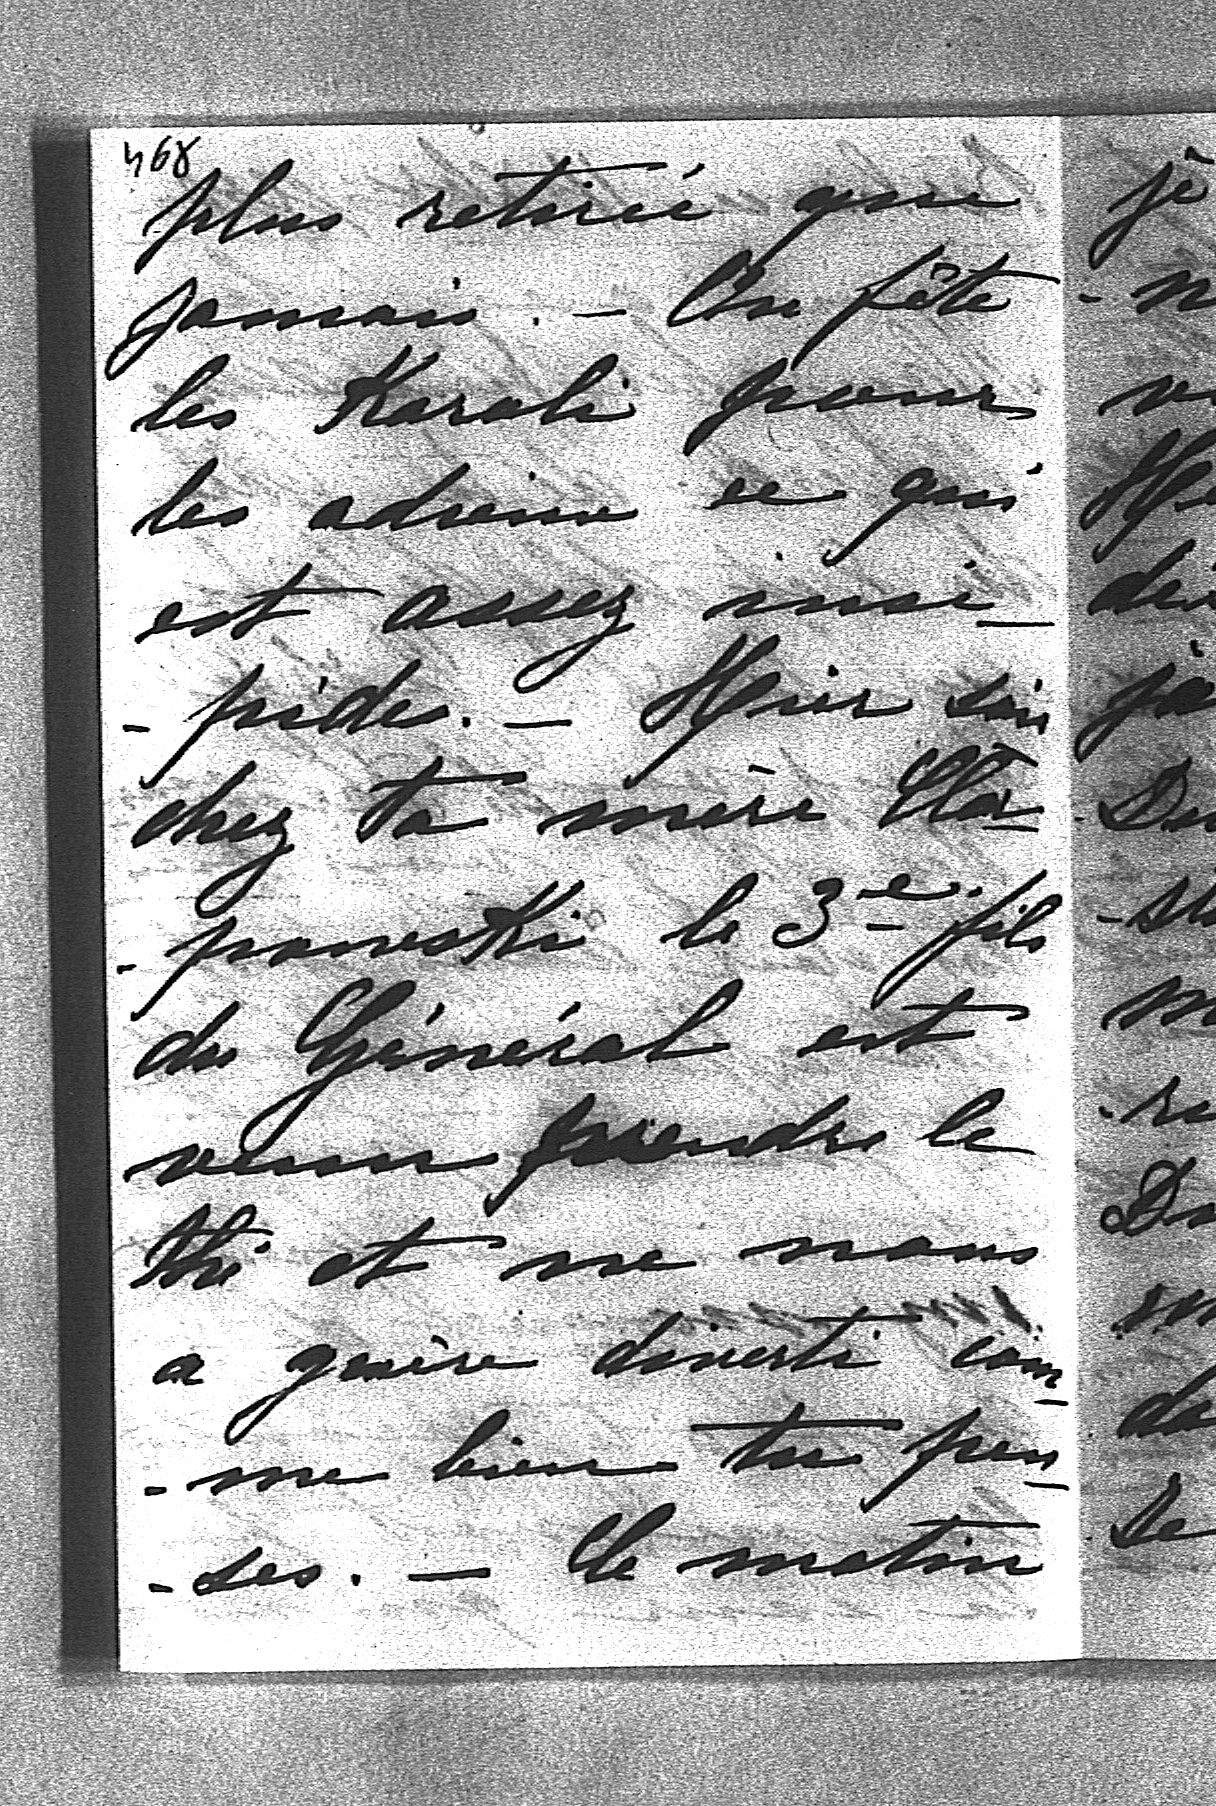 468
plus retirée que
jamais. — On fête
les Karoli pour
les adieux ce qui
est assez insi-
-pide. — Hier soir
chez ta mère Cla-
-panoski le 3e fils
du Général est
venu prendre le
thé et ne nous
a guère diverti com-
-me bien tu pen-
-ses. — Ce matin